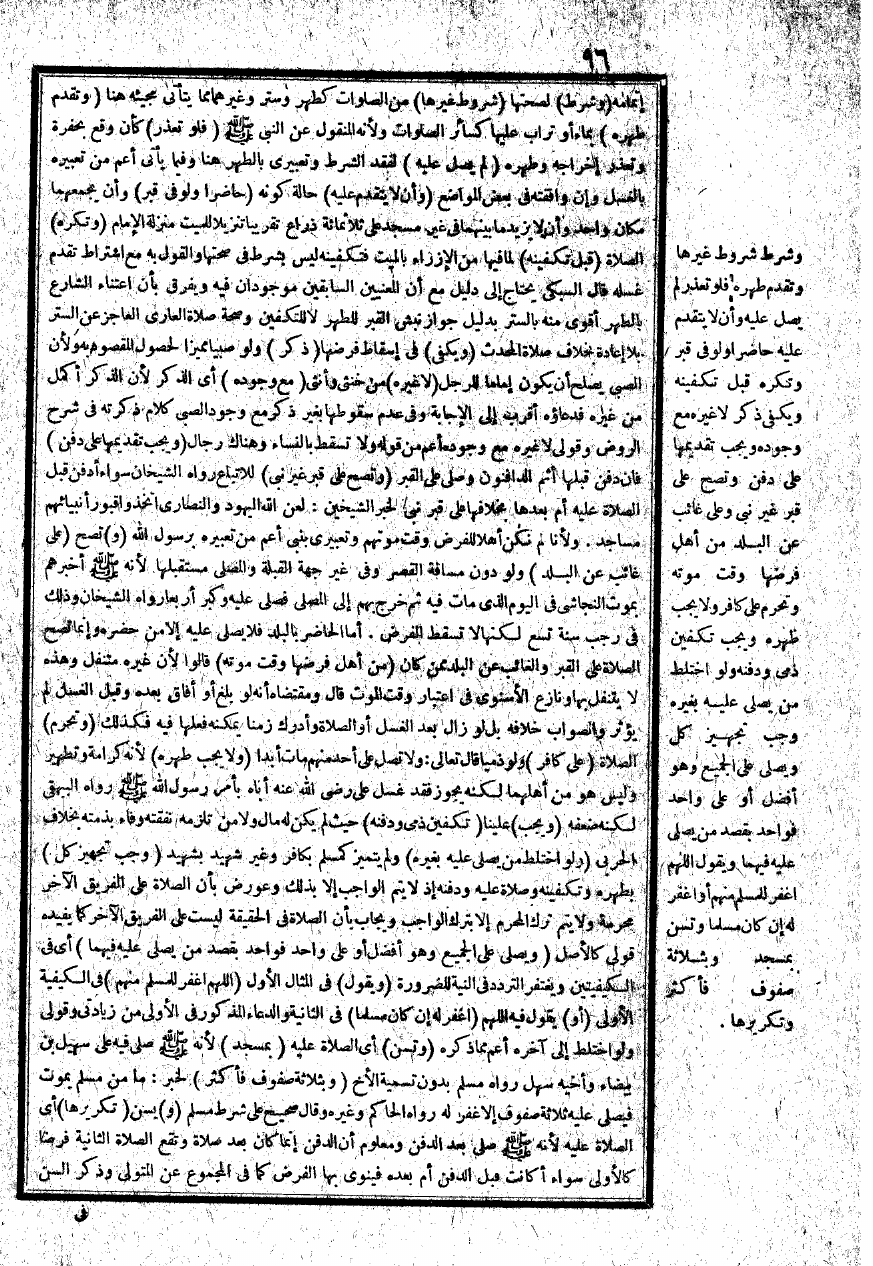 ٩٦
إتمامه (وشرط) لصحتها (شروط غيرها) من الصلوات كطهر وستر وغيرهما مما يتأتى مجيئه هنا (وتقدم
طهره) بماء أو تراب عليها كسائر الصلوات ولأنه المنقول عن النبي ﷺ (فلو تعذر) كأن وقع بحفرة
وتعذر إخراجه وطهره (لم يصل عليه) لفقد الشرط وتعبيرى بالطهر هنا وفيما يأتى أعم من تعبيره
بالغسل وإن وافقته فى بعض المواضع (وأن لا يتقدم عليه) حالة كونه (حاضرا ولو فى قبر) وأن يجمعهما
مكان واحد وأن لا يزيد ما بينهما فى غير مسجد على ثلاثمائة ذراع تقريبا تنزيلا للميت منزلة الإمام (وتكره)
الصلاة (قبل تكفينه) لما فيها من الإزراء بالميت فتكفينه ليس بشرط فى صحتها والقول به مع اشتراط تقدم
غسله قال السبكى يحتاج إلى دليل مع أن المعنيين السابقين موجودان فيه ويفرق بأن اعتناء الشارع
بالطهر أقوى منه بالستر بدليل جواز نبش القبر للطهر لا للتكفين وصحة صلاة العارى العاجز عن الستر
بلا إعادة بخلاف صلاة المحدث (ويكفى) فى إسقاط فرضها (ذكر) ولو صبيا مميزا لحصول المقصود به ولأن
الصبي يصلح أن يكون إماما للرجل (لا غيره) من خنثى وأنثى (مع وجوده) أى الذكر لأن الذكر أكمل
من غيره فدعاؤه أقرب إلى الإجابة وفى عدم سقوطها بغير ذكر مع وجود الصبي كلام ذكرته فى شرح
الروض وقولى لا غيره مع وجوده أعم من قوله ولا تسقط بالنساء وهناك رجال (ويجب تقديمها على دفن)
فان دفن قبلها أثم الدافنون وصلى على القبر (وتصح على قبر غير نبى) للاتباع رواه الشيخان سواء أدفن قبل
الصلاة عليه أم بعدها بخلافها على قبر نبى لخبر الشيخين : لعن الله اليهود والنصارى اتخذوا قبور أنبيائهم
مساجد . ولأنا لم نكن أهلا للفرض وقت موتهم وتعبيرى بنبى أعم من تعبيره برسول الله (و) تصح (على
غائب عن البلد) ولو دون مسافة القصر وفى غير جهة القبلة والمصلى مستقبلها لأنه ﷺ أخبرهم
بموت النجاشى فى اليوم الذى مات فيه ثم خرج بهم إلى المصلى فصلى عليه وكبر أربعا رواه الشيخان وذلك
فى رجب سنة تسع لكنها لا تسقط الفرض . أما الحاضر بالبلد فلا يصلى عليه إلا من حضره وإنما تصح
الصلاة على القبر والغائب عن البلد ممن كان (من أهل فرضها وقت موته) قالوا لأن غيره متنفل وهذه
لا يتنفل بها ونازع الأسنوى فى اعتبار وقت الموت قال ومقتضاه أنه لو بلغ أو أفاق بعده وقبل الغسل لم
يؤثر والصواب خلافه بل لو زال بعد الغسل أو الصلاة وأدرك زمنا يمكنه فعلها فيه فكذلك (وتحرم)
الصلاة (على كافر) ولو ذميا قال تعالى : ولا تصل على أحد منهم مات أبدا (ولا يجب طهره) لأنه كرامة وتطهير
وليس هو من أهلهما لكنه يجوز فقد غسل على رضى الله عنه أباه بأمر رسول الله ﷺ رواه البيهقى
لكنه ضعفه (ويجب) علينا (تكفين ذمى ودفنه) حيث لم يكن له مال ولا من تلزمه نفقته وفاء بذمته بخلاف
الحربى (ولو اختلط من يصلى عليه بغيره) ولم يتميز كمسلم بكافر وغير شهيد بشهيد (وجب تجهيز كل)
بطهره وتكفينه وصلاة عليه ودفنه إذ لا يتم الواجب إلا بذلك وعورض بأن الصلاة على الفريق الآخر
محرمة ولا يتم ترك المحرم إلا بترك الواجب ويجاب بأن الصلاة فى الحقيقة ليست على الفريق الآخر كما يفيده
قولى كالأصل (ويصلى على الجميع وهو أفضل أو على واحد فواحد بقصد من يصلى عليه فيهما) أى فى
الكيفيتين ويغتفر التردد فى النية للضرورة (ويقول) فى المثال الأول (اللهم اغفر للمسلم منهم) فى الكيفية
الأولى (أو) يقول فيه اللهم (اغفر له إن كان مسلما) فى الثانية والدعاء المذكور فى الأولى من زيادتى وقولى
ولو اختلط إلى آخره أعم مما ذكره (وتسن) أى الصلاة عليه (بمسجد) لأنه ﷺ صلى فيه على سهيل بن
بيضاء وأخيه سهل رواه مسلم بدون تسمية الأخ (وبثلاثة صفوف فأكثر) لخبر : ما من مسلم يموت
فيصلى عليه ثلاثة صفوف إلا غفر له رواه الحاكم وغيره وقال صحيح على شرط مسلم (و) يسن (تكريرها) أى
الصلاة عليه لأنه ﷺ صلى بعد الدفن ومعلوم أن الدفن إنما كان بعد صلاة وتقع الصلاة الثانية فرضا
كالأولى سواء أكانت قبل الدفن أم بعده فينوى بها الفرض كما فى المجموع عن المتولى وذكر السن
فى
وشرط شروط غيرها
وتقدم طهره فلو تعذر لم
يصل عليه وأن لا يتقدم
عليه حاضرا ولو فى قبر
وتكره قبل تكفينه
ويكفى ذكر لا غيره مع
وجوده ويجب تقديمها
على دفن وتصح على
قبر غير نبى وعلى غائب
عن البلد من أهل
فرضها وقت موته
وتحرم على كافر ولا يجب
طهره ويجب تكفين
ذمى ودفنه ولو اختلط
من يصلى عليه بغيره
وجب تجهيز كل
ويصلى على الجميع وهو
أفضل أو على واحد
فواحد بقصد من يصلى
عليه فيهما ويقول اللهم
اغفر للمسلم منهم أو اغفر
له إن كان مسلما وتسن
بمسجد وبثلاثة
صفوف فأكثر
وتكريرها .